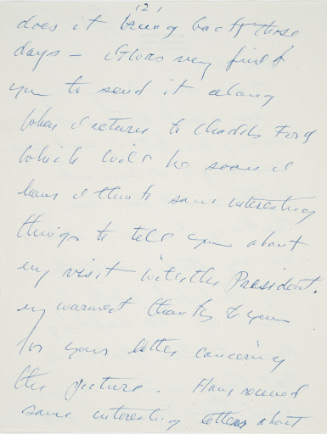 (2)
does it bring back those
days - it was very kind of
you to send it along
When I return to Chadds Ford
which will be soon I
have I think some interesting
things to tell you about
my visit with the President.
my warmest thanks to you
for your letter concerning
the picture. Have received
some interesting letters about